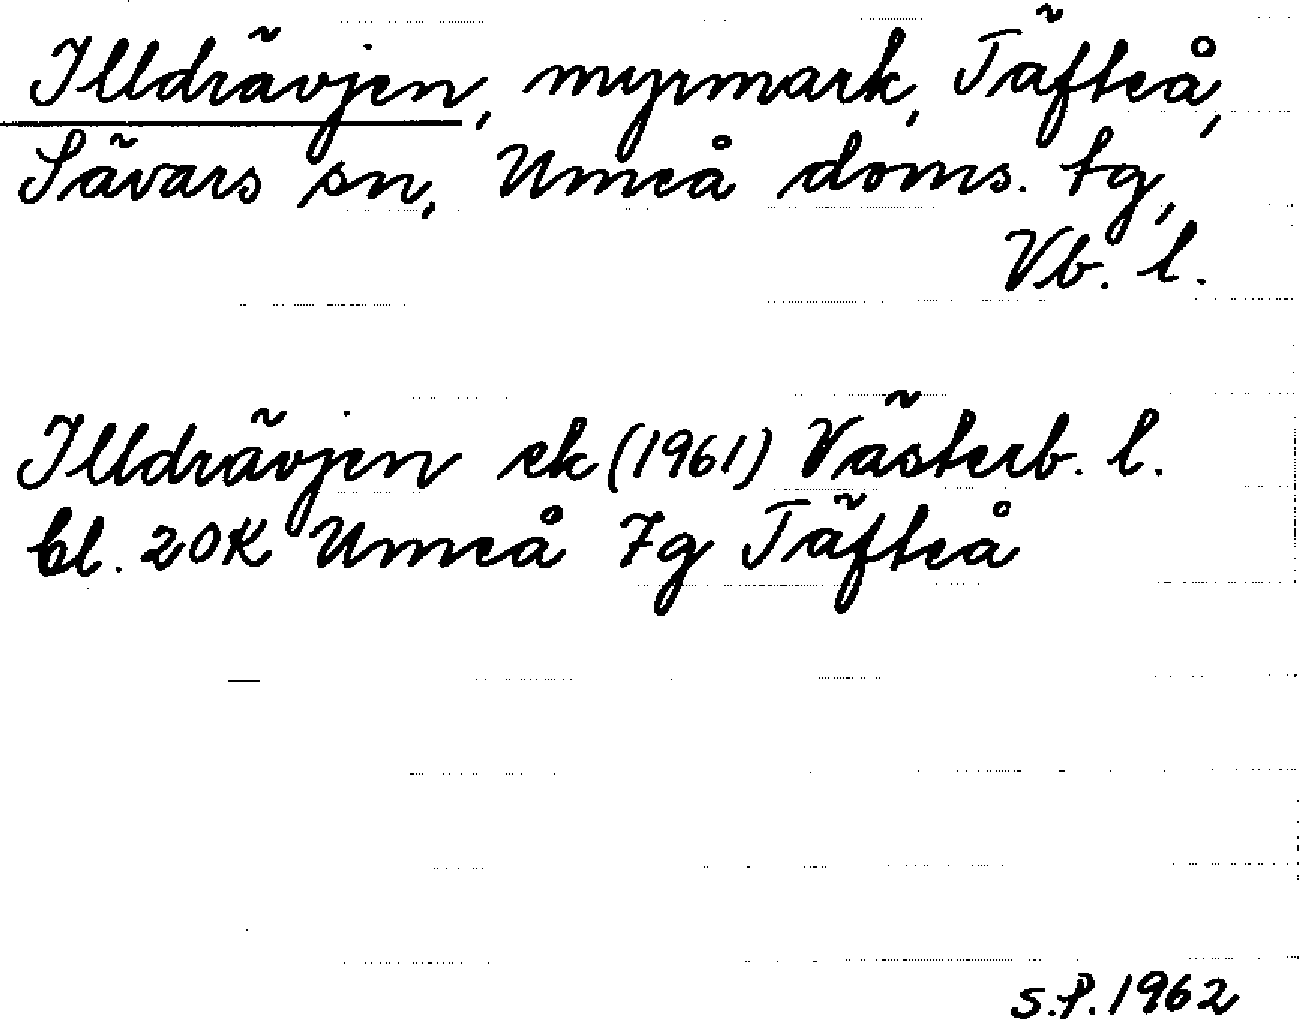 Illdrävjen, myrmark, Täfteå,
Sävars sn, Umeå doms. tg,
Vb. l.
Illdrävjen ek (1961) Västerb. l.
bl. 20K Umeå 7g Täfteå
S.P. 1962